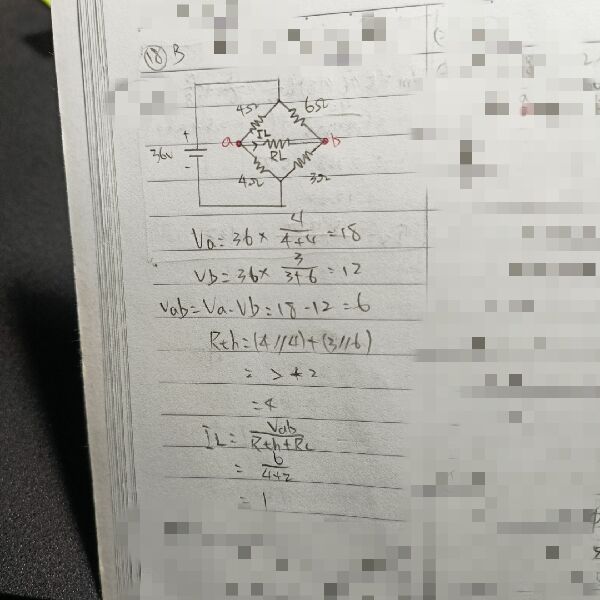 (18) B
4Ω 6Ω
+ a IL b
36V RL
-
4Ω 3Ω
Va = 36 × 4/(4+4) = 18
Vb = 36 × 3/(3+6) = 12
Vab = Va - Vb = 18 - 12 = 6
Rth = (4//4) + (3//6)
= 2 + 2
= 4
IL = Vab/(Rth+RL)
= 6/(4+2)
= 1